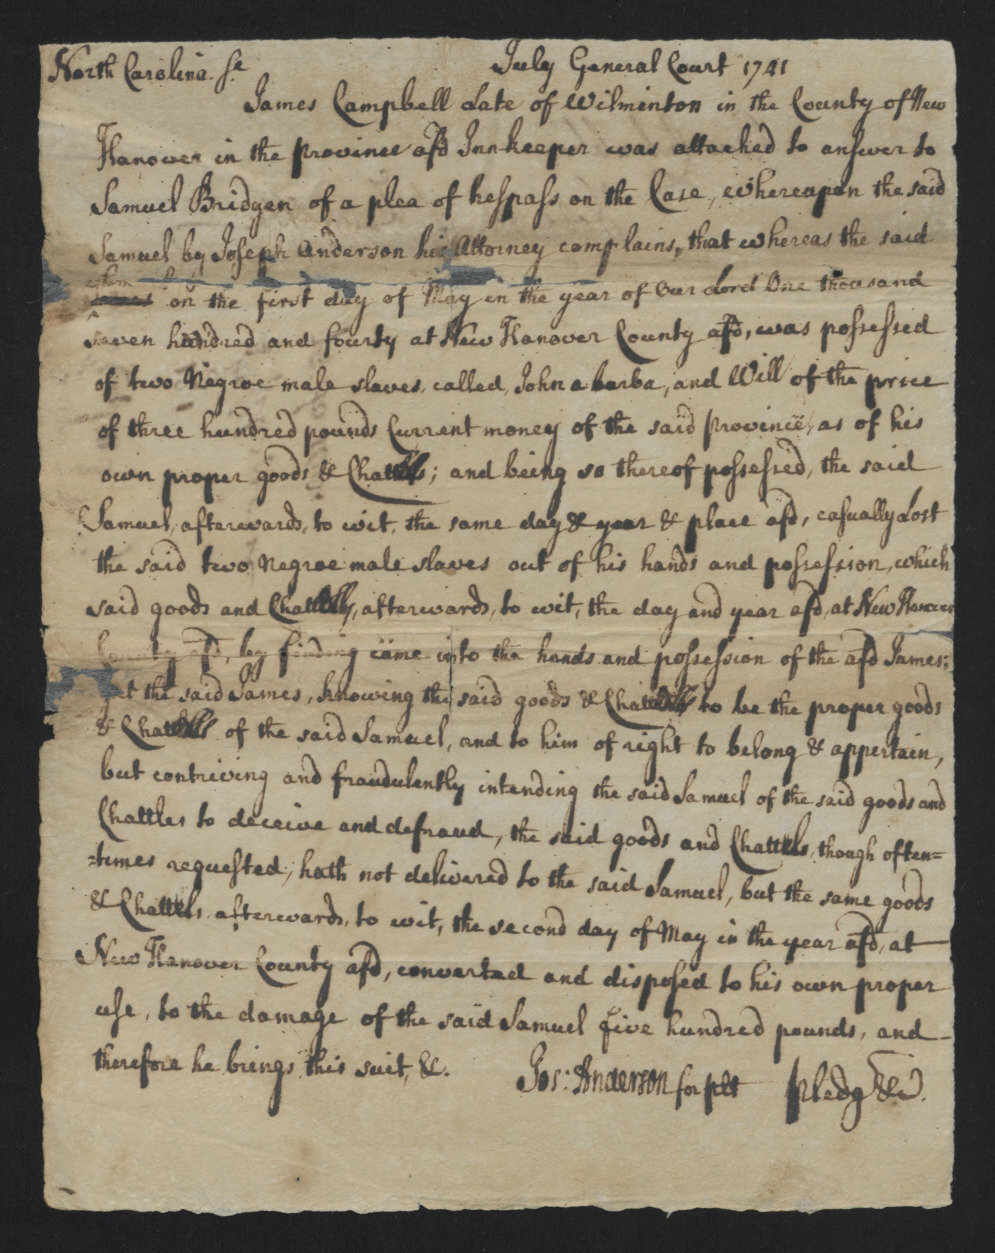 North Carolina Sc July General Court 1741
James Campbell late of Wilminton in the County of New
Hanover in the province afsd Inn-keeper was attached to answer to
Samuel Bridgen of a plea of trespass on the Case, whereupon the said
Samuel by Joseph Anderson his Attorney complains, that whereas the said
Sam on the first day of May in the year of Our Lord One thousand
Seven hundred and fourty at New Hanover County afsd, was possessed
of two Negroe male slaves called, John a barba, and Will of the price
of three hundred pounds Current money of the said province, as of his
own proper goods & Chattles; and being so thereof possessed, the said
Samuel, afterwards, to wit, the same day & year & place afsd, casually Lost
the said two Negroe male slaves out of his hands and possession, which
said goods and Chattells, afterwards, to wit, the day and year afsd, at New Hanover
County afsd, by finding came into the hands and possession of the afsd James;
yet the said James, knowing the said goods & Chattells to be the proper goods
& Chattells of the said Samuel, and to him of right to belong & appertain,
but contriving and fraudulently intending the said Samuel of the said goods and
Chattles to deceive and defraud, the said goods and Chattels, though often=
=times requested, hath not delivered to the said Samuel, but the same goods
& Chattels, afterwards, to wit, the second day of May in the year afsd, at
New Hanover County afsd, converted and disposed to his own proper
use, to the damage of the said Samuel five hundred pounds, and
therefore he brings this suit, &c.
Jos: Anderson for plt pledg &c.